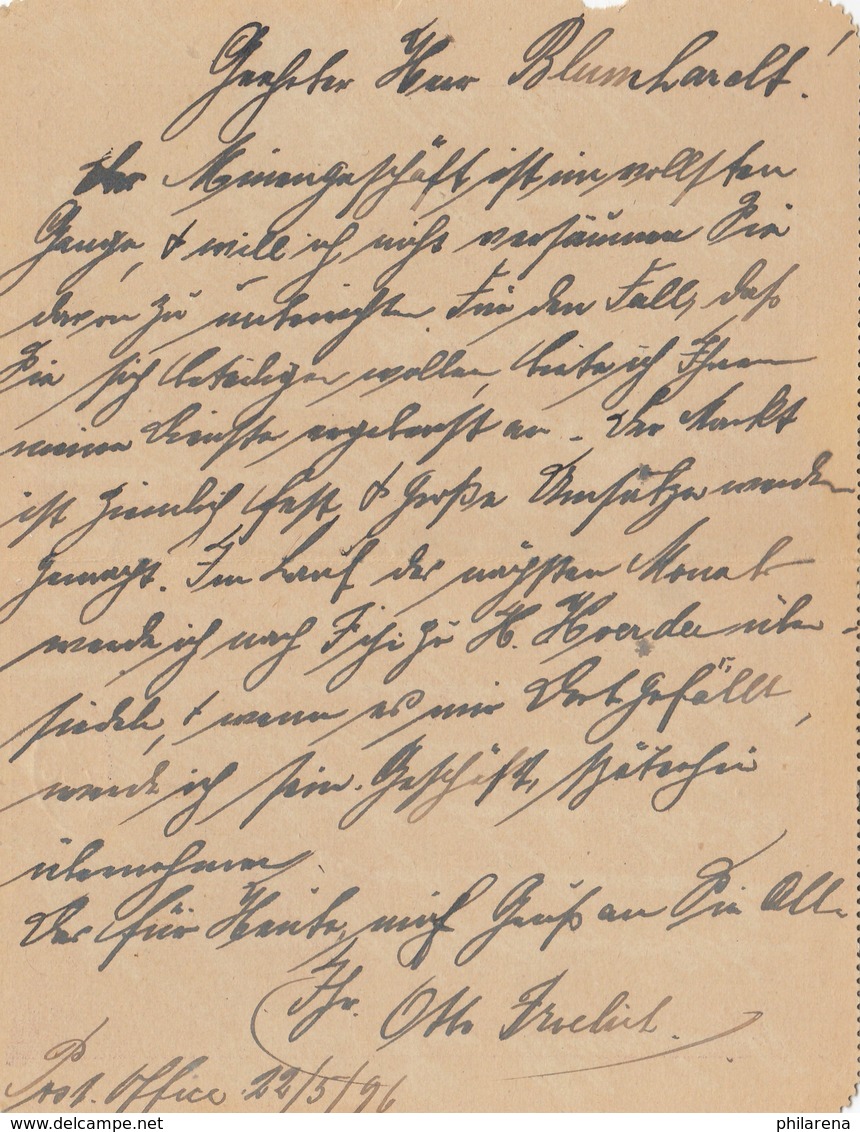 Geehrter Herr Blumhardt!
Das Minengeschäft ist im vollsten
Gange, & will ich nicht versäumen Sie
davon zu unterrichten. Für den Fall, daß
Sie sich beteiligen wollen, biete ich Ihnen
meine Dienste ergebenst an. Der Markt
ist ziemlich fest, & große Umsätze werden
gemacht. Im Lauf des nächsten Monat
werde ich nach Fiji zu H. über-
siedeln, & wenn es mir dort gefällt,
werde ich sein Geschäft, späterhin
übernehmen
Das für Heute, mit Gruß an Sie Alle
Ihr Otto
Post. Office 22/5/96
delcampe.net
philarena